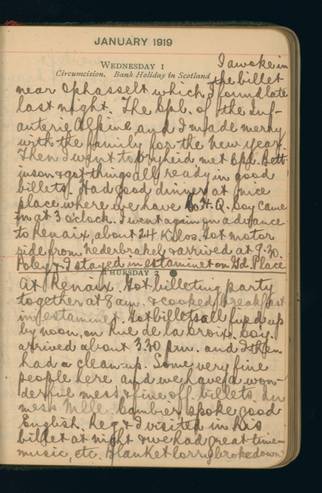 JANUARY 1919
WEDNESDAY 1
Circumcision. Bank Holiday in Scotland
I awoke in
the billet
near Ophasselt which I found late
last night. The Cpl. of the Inf-
anterie Alpine and I made merry
with the family for the new year.
Then I went to met Cpl.
& got things all ready in good
billets. Had good dinner at nice
place where we have H.Q. Coy came
in at 3 o'clock. I went again on advance
to Renaix about 24 kilos. Got motor
ride from Nederbrakel & arrived at 9.30.
& I stayed in estaminet on Gd. Place
THURSDAY 2
At Renaix. Got billeting party
together at 8 am. & cooked breakfast
in estaminet. Got billets all fixed up
by noon, on Rue de la Croix. Coy.
arrived about 3.30 pm. and I then
had a clean-up. Some very fine
people here and we have a won-
derful mess & fine off. billets. In
mess Mlle. spoke good
English. Reg & I visited in his
billet at night & we had great time
music, etc. Blanket lorry broke down